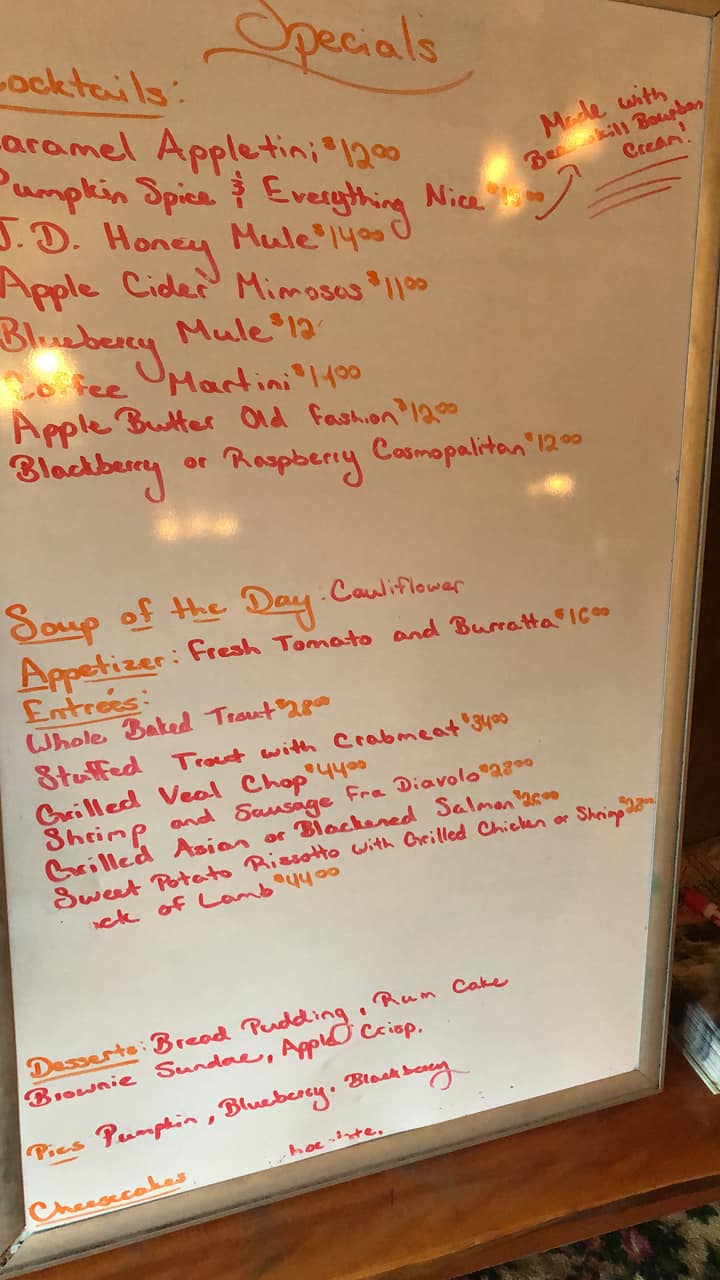 Specials
ocktails:
aramel Appletini $12.00
Pumpkin Spice & Everything Nice
Made with
Bourbon
Cream!
J.D. Honey Mule $14.00
Apple Cider Mimosas $11.00
Blueberry Mule $12
Coffee Martini $14.00
Apple Butter Old fashion $12.00
Blackberry or Raspberry Cosmopalitan $12.00
Soup of the Day: Cauliflower
Appetizer: Fresh Tomato and Burratta $16.00
Entrées:
Whole Baked Trout $28.00
Stuffed Trout with Crabmeat $34.00
Grilled Veal Chop $44.00
Shrimp and Sausage Fra Diavolo $28.00
Grilled Asian or Blackened Salmon $26.00
Sweet Potato Rissotto with Grilled Chicken or Shrimp $28.00
ck of Lamb $44.00
Desserts: Bread Pudding, Rum Cake
Brownie Sundae, Apple Crisp.
Pies Pumpkin, Blueberry, Blackberry
Cheesecakes